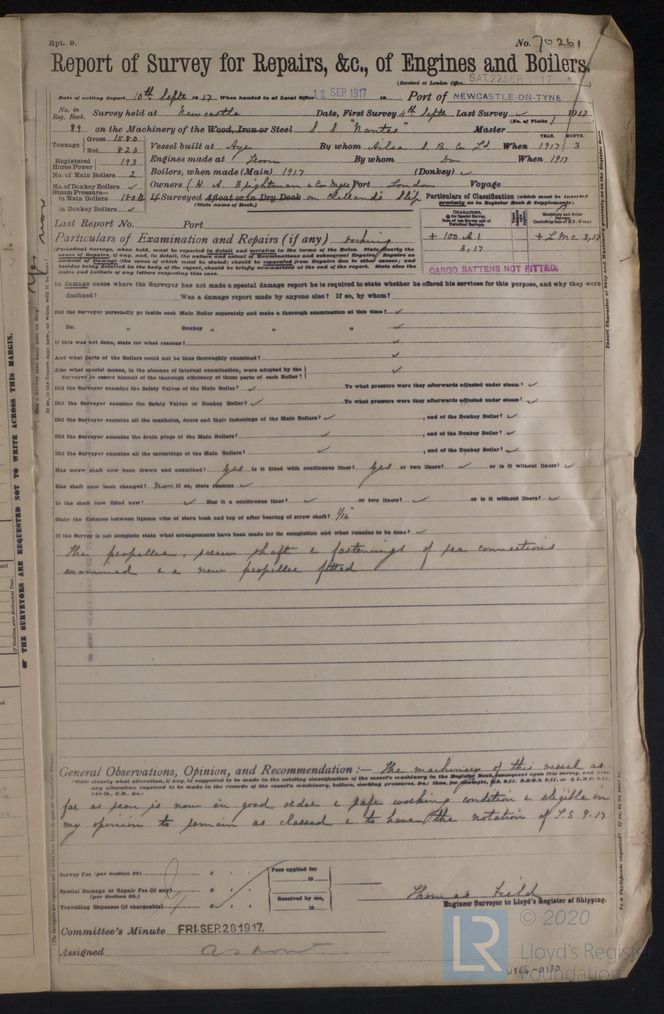 Rpt. 9.
No. 70261
Report of Survey for Repairs, &c., of Engines and Boilers.
(Received at London Office SAT. 22 SEP 1917
Date of writing Report 10th Septr 1917 When handed in at Local Office 12 SEP 1917 Port of NEWCASTLE-ON-TYNE
No. in Reg. Book. Survey held at Newcastle Date, First Survey 4th Septr Last Survey ✓ 1917
(No. of Visits 1
89 on the Machinery of the Wood, Iron or Steel S S "Nantes" Master
Tonnage Gross 1580
Net 823
Vessel built at Ayr By whom Ailsa S B. Co Ld When 1917 3
YEAR. MONTH.
Registered Horse Power 193 Engines made at Troon By whom Do When 1917
No. of Main Boilers 2 Boilers, when made (Main) 1917 (Donkey) ✓
No. of Donkey Boilers ✓ Owners (H. A. Brightman & Co Mgrs) Port London Voyage
Steam Pressure in Main Boilers 180 lb Surveyed Afloat or in Dry Dock on
(State name of Dock.)
in Donkey Boilers ✓
Particulars of Classification (which must be inserted precisely as in Register Book & Supplements).
Last Report No. Port
+ 100 A 1
3,17
+ L M C 3,17
CARGO BATTENS NOT FITTED.
Particulars of Examination and Repairs (if any) Docking
(Periodical Surveys, when held, must be reported in detail and seriatim in the terms of the Rules. State clearly the cause of Repairs, if any, and, in detail, the nature and extent of Examinations and subsequent Repairs. Repairs on account of Damage (the cause of which must be stated) should be separated from Repairs due to other causes; and besides being detailed in the body of the report, should be briefly summarised at the end of the report. State also the dates and initials of any letters respecting this case.
In damage cases where the Surveyor has not made a special damage report he is required to state whether he offered his services for this purpose, and why they were
declined? Was a damage report made by anyone else? If so, by whom?
Did the Surveyor personally go inside each Main Boiler separately and make a thorough examination at this time? ✓
Do. " Donkey " " " ✓
If this was not done, state for what reasons? ✓
And what parts of the Boilers could not be thus thoroughly examined? ✓
Also what special means, in the absence of internal examination, were adopted by the Surveyor to assure himself of the thorough efficiency of those parts of each Boiler? ✓
Did the Surveyor examine the Safety Valves of the Main Boiler? ✓ To what pressure were they afterwards adjusted under steam? ✓
Did the Surveyor examine the Safety Valves of Donkey Boiler? ✓ To what pressure were they afterwards adjusted under steam? ✓
Did the Surveyor examine all the manholes, doors and their fastenings of the Main Boilers? ✓ , and of the Donkey Boiler? ✓
Did the Surveyor examine the drain plugs of the Main Boilers? ✓ , and of the Donkey Boiler? ✓
Did the Surveyor examine all the mountings of the Main Boilers? ✓ , and of the Donkey Boiler? ✓
Has screw shaft now been drawn and examined? Yes Is it fitted with continuous liner? Yes or two liners? ✓ or is it without liners? ✓
Has shaft now been changed? No If so, state reasons ✓
Is the shaft now fitted new? ✓ Has it a continuous liner? ✓ or two liners? ✓ or is it without liners? ✓
State the distance between lignum vitæ of stern bush and top of after bearing of screw shaft? 1/16"
If the Survey is not complete state what arrangements have been made for its completion and what remains to be done? ✓
The propeller, screw shaft & fastenings of sea connections
examined & a new propeller fitted
General Observations, Opinion, and Recommendation:— The machinery of this vessel as
far as seen is now in good order & safe working condition & eligible in
my opinion to remain as classed & to have the notation of T.S 9-17
Survey Fee (per Section 29)
Special Damage or Repair Fee (if any)
(per Section 29.)
Travelling Expenses (if chargeable)
Fees applied for
19
Received by me,
19
Thomas Field
Engineer Surveyor to Lloyd's Register of Shipping.
Committee's Minute FRI. SEP. 28 1917.
Assigned as now
© 2020
Lloyd's Register
Foundation
LR
W866-0130
OF THE SURVEYORS ARE REQUESTED NOT TO WRITE ACROSS THIS MARGIN.